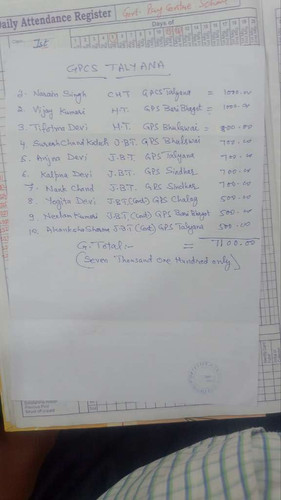 Daily Attendance Register
Days of
GPCS TALYANA
1. Narain Singh CHT GPCS Talyana = 1000.00
2. Vijay Kumari HT. GPS Beri Bhagot = 1000.00
3. Devi H.T. GPS Bhalswai = 800.00
4 J.B.T. GPS Bhalswai 700.00
5. Anjna Devi J.B.T. GPS Talyana 700.00
6. Kalpna Devi J.B.T. GPS Siodhar 700.00
7. Nank Chand J.B.T. GPS Siodhar 700.00
8 Yogita Devi J.B.T (Cont) GPS Chalog 500.00
9 Neelam Kumari J.B.T. (Cont) GPS Beri Bhagot 500.00
10. Akanksha Sharma J.B.T (Cont) GPS Talyana 500.00
G. Total:- = 7100.00
(Seven Thousand one Hundred only)